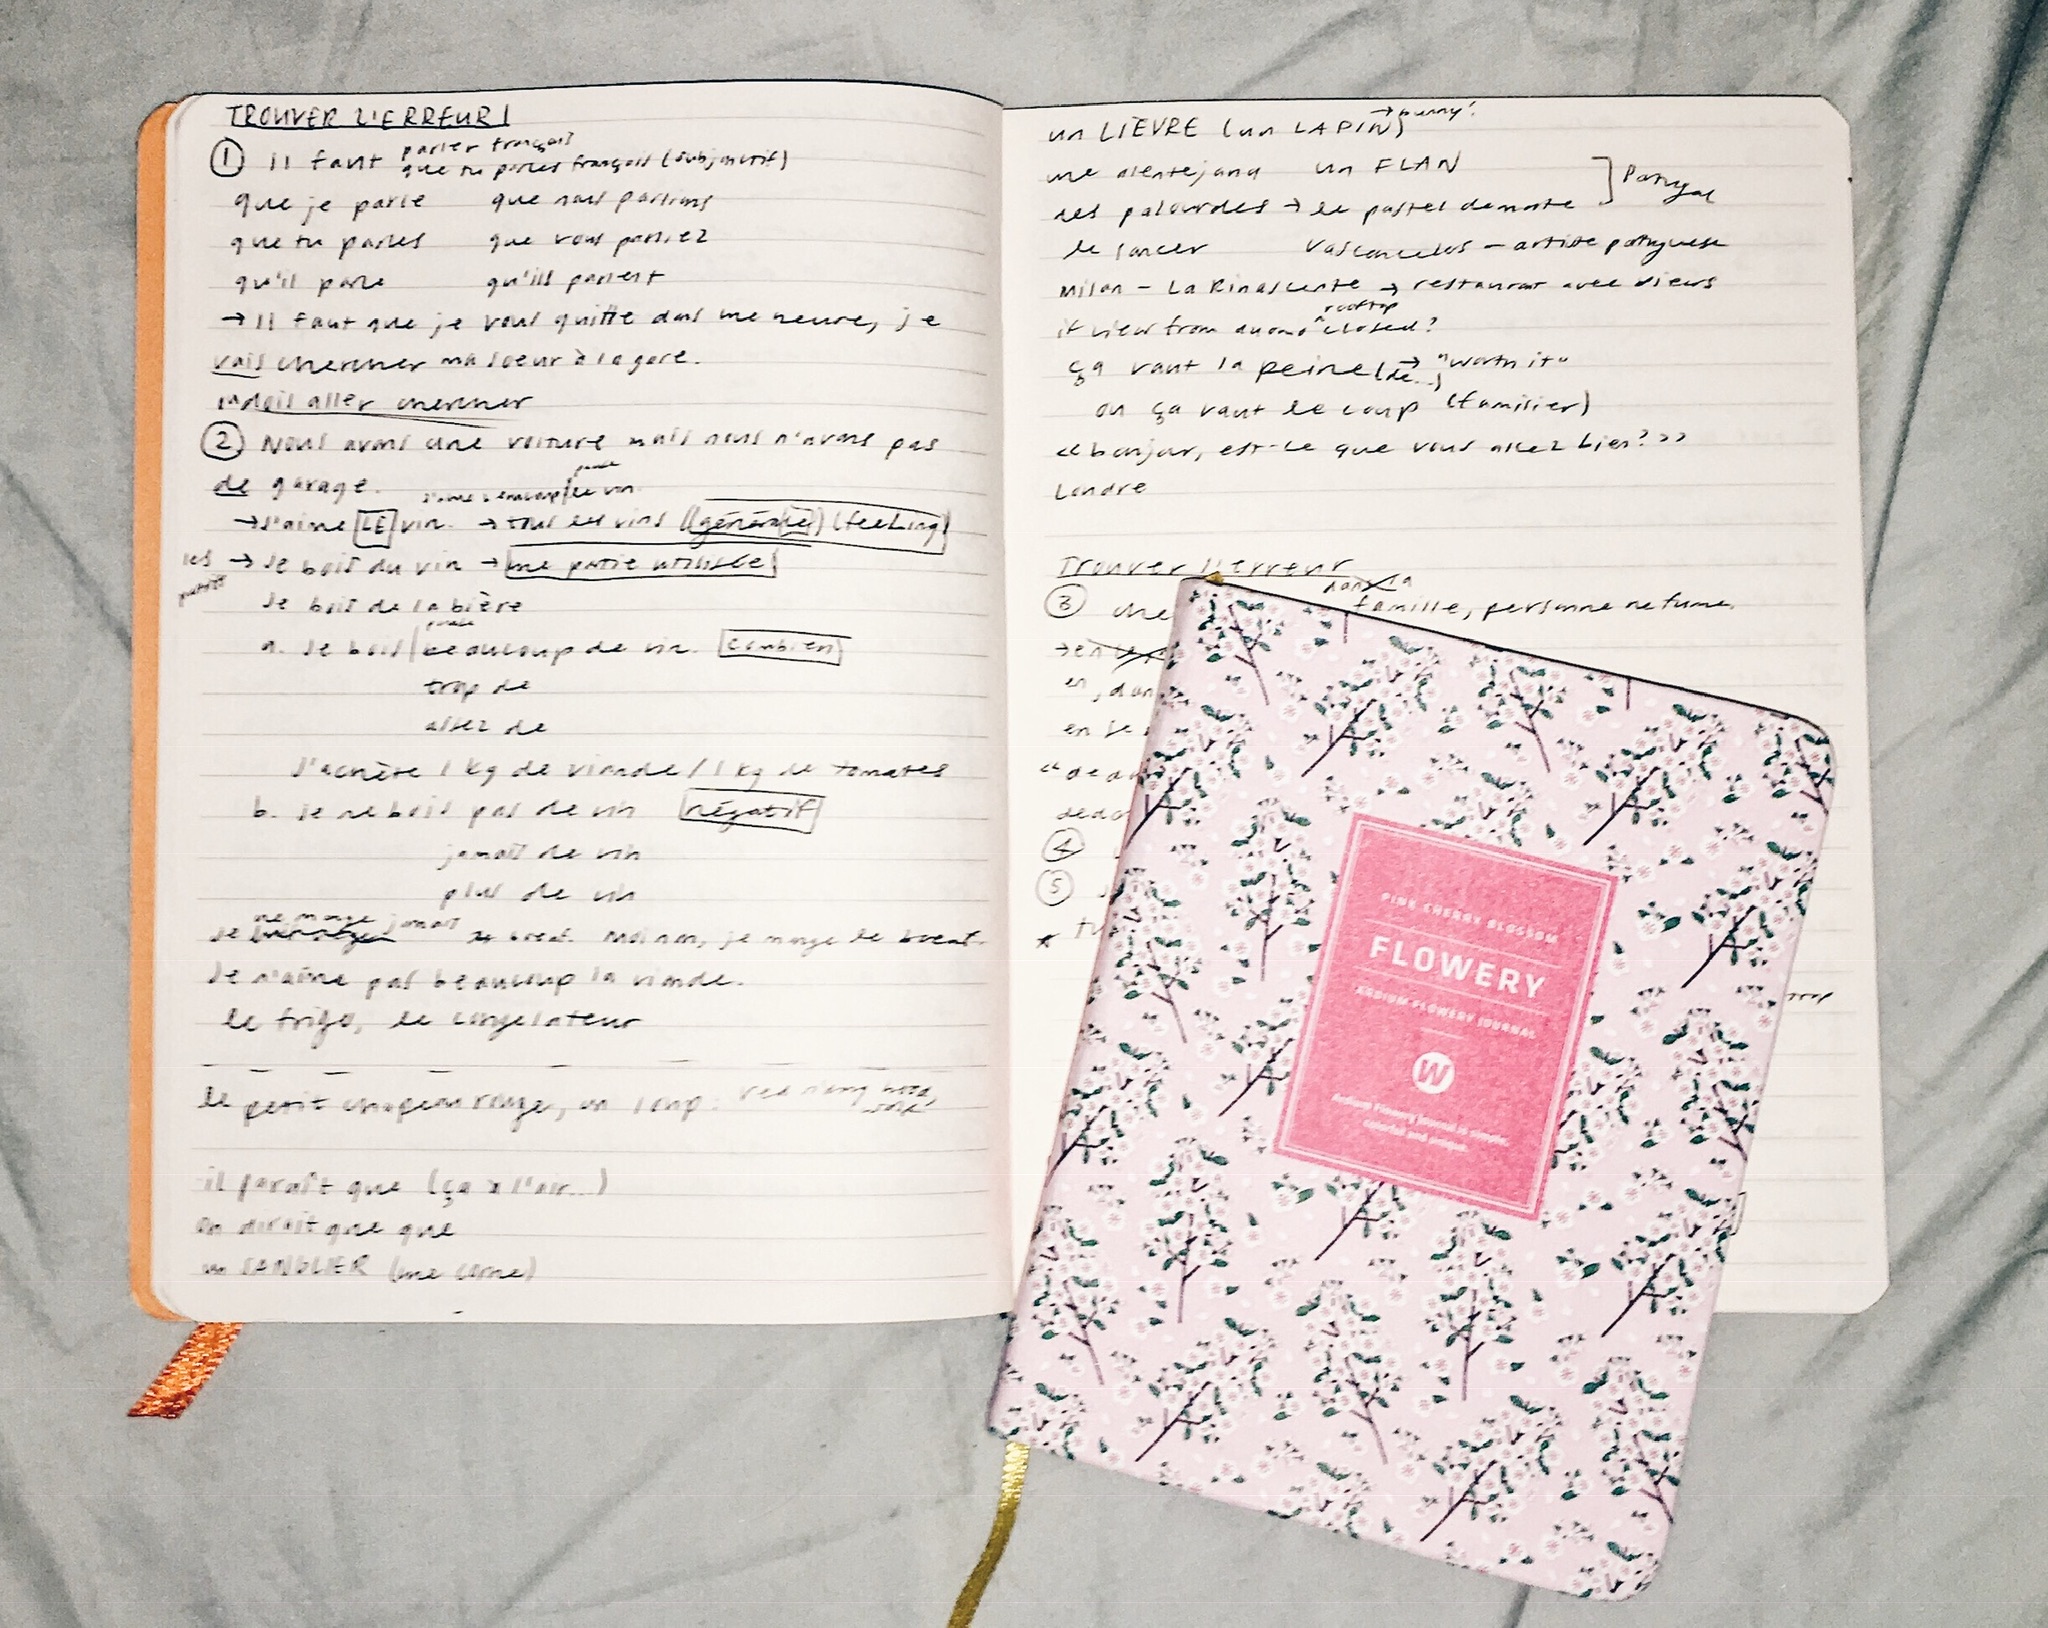 TROUVER L'ERREUR!
parler français
① Il faut que tu parles français (subjonctif)
que je parle que nous parlions
que tu parles que vous parliez
qu'il parle qu'ils parlent
→ Il faut que je vous quitte dans une heure, je
vais chercher ma soeur à la gare.
doit aller chercher
② Nous avons une voiture mais nous n'avons pas
de garage.
J'aime beaucoup le vin.
→ J'aime LE vin. → tous les vins (générale) (feeling)
les → Je bois du vin → une partie utilisée
Je bois de la bière
a. Je bois beaucoup de vin. combien
trop de
assez de
J'achète 1 kg de viande / 1 kg de tomates
b. Je ne bois pas de vin négatif
jamais de vin
plus de vin
ne mange jamais
Je Moi non, je mange de
Je n'aime pas beaucoup la viande.
le frigo, le congelateur
le petit chapeau rouge, un loup: red riding hood,
wolf
il paraît que (ça a l'air...)
on dirait que que
un SANGLIER (une corne)
→ bunny!
un LIÈVRE (un LAPIN)
une alentejana un FLAN
des palourdes → le pastel de nate Portugal
le lancer Vasconcelos - artiste portuguese
Milan - La Rinascente → restaurant avec views
rooftop
if view from duomo ^ closed?
ça vaut la peine (de...) → "worth it"
ou ça vaut le coup (familier)
«bonjour, est-ce que vous allez bien?»
Londre
Trouver l'erreur
dans la
③ che famille, personne ne fume.
→ en
en, dan
en
"de
④
⑤
*
trop
PINK CHERRY BLOSSOM
FLOWERY
ARDIUM FLOWERY JOURNAL
W
Ardium Flowery journal is simple,
colorful and unique.